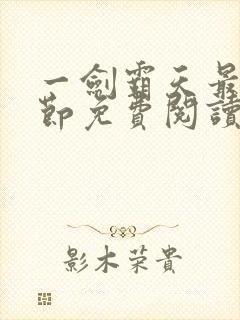 一劍霸天最
節免費閱讀
影木荣貴